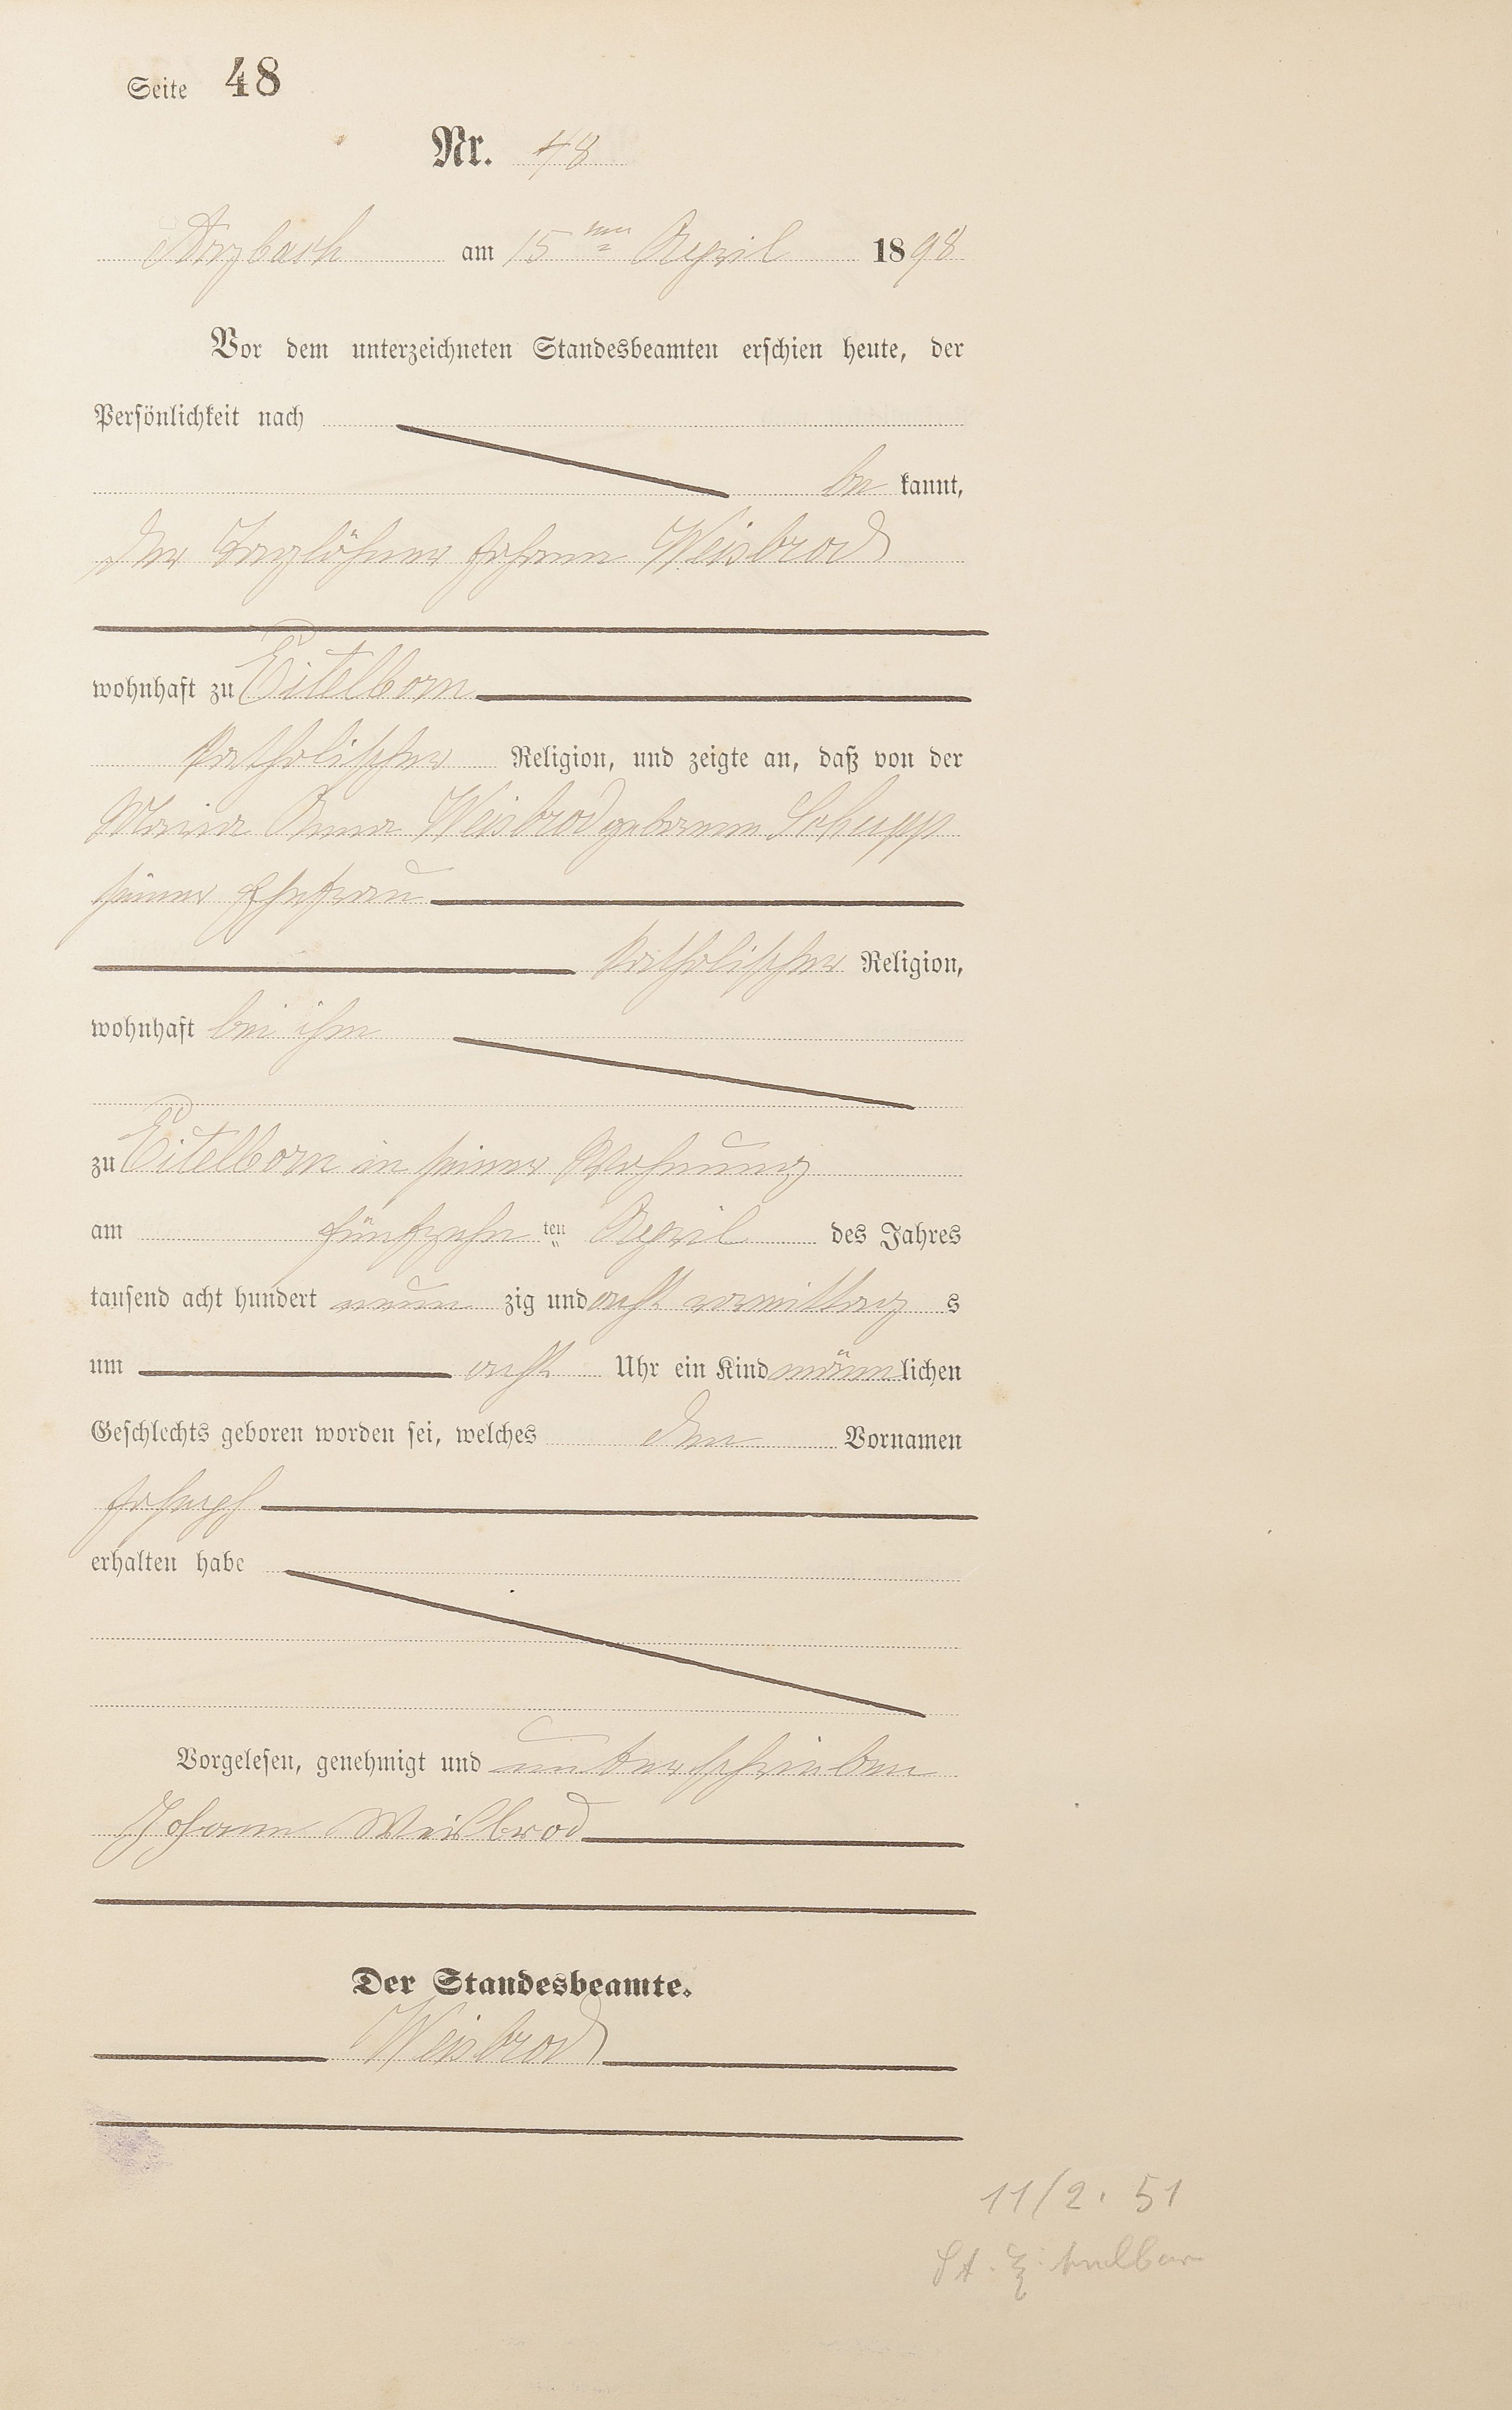 Seite 48
Nr. 48
Arzbach am 15ten April 1898
Vor dem unterzeichneten Standesbeamten erschien heute, der
Persönlichkeit nach
be kannt,
der Taglöhner Johann Weisbrod
wohnhaft zu Eitelborn
katholischer Religion, und zeigte an, daß von der
Maria Anna Weisbrod geborene Schupp
seiner Ehefrau
katholischer Religion,
wohnhaft bei ihm
zu Eitelborn in seiner Wohnung
am fünfzehn ten April des Jahres
tausend acht hundert neun zig und acht vormittag s
um acht Uhr ein Kind männ lichen
Geschlechts geboren worden sei, welches den Vornamen
Joseph
erhalten habe
Vorgelesen, genehmigt und unterschrieben
Johann Weisbrod
Der Standesbeamte.
Weisbrod
11/2. 51
St.